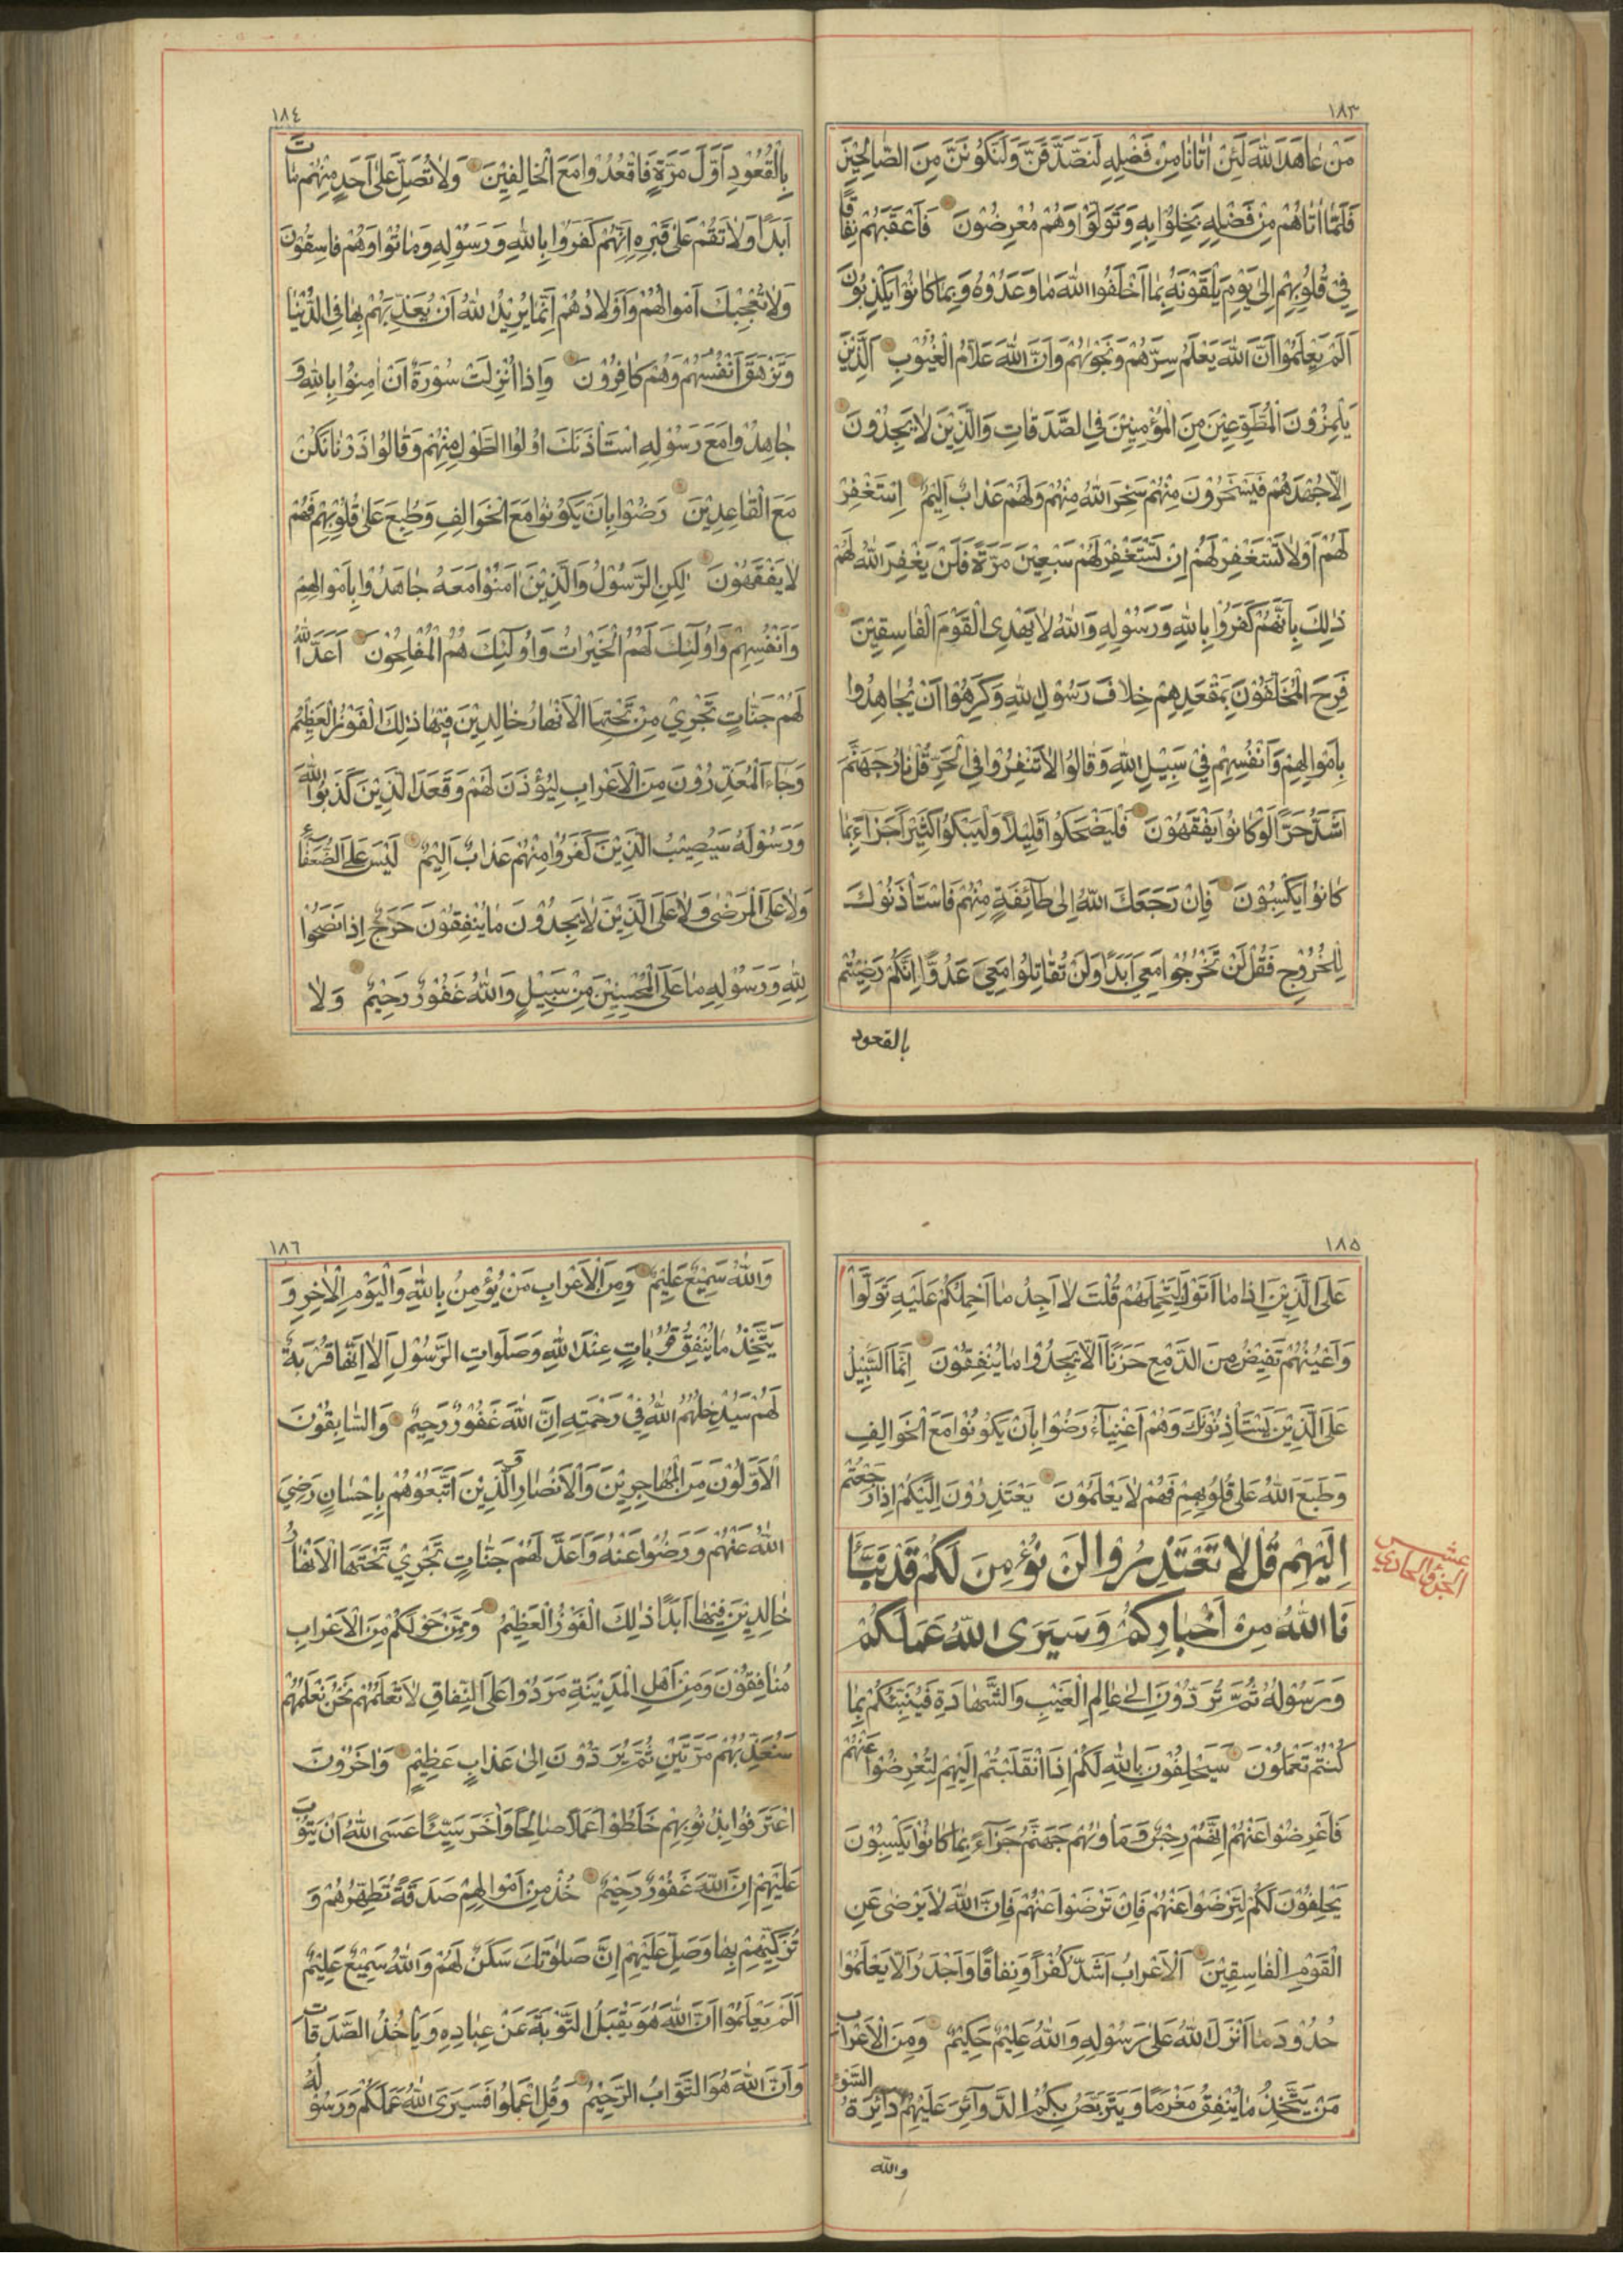 ١٨٣
مَنْ عَاهَدَ اللّٰهَ لَئِنْ اٰتَانَا مِنْ فَضْلِهِ لَنَصَّدَّقَنَّ وَلَنَكُونَنَّ مِنَ الصَّالِحِيْنَ
فَلَمَّا اٰتَاهُمْ مِنْ فَضْلِهِ بَخِلُوْا بِهِ وَتَوَلَّوْا وَهُمْ مُعْرِضُوْنَ فَاَعْقَبَهُمْ نِفَاقًا
فِيْ قُلُوْبِهِمْ اِلٰى يَوْمِ يَلْقَوْنَهُ بِمَا اَخْلَفُوا اللّٰهَ مَا وَعَدُوْهُ وَبِمَا كَانُوْا يَكْذِبُوْنَ
اَلَمْ يَعْلَمُوْا اَنَّ اللّٰهَ يَعْلَمُ سِرَّهُمْ وَنَجْوٰيهُمْ وَاَنَّ اللّٰهَ عَلَّامُ الْغُيُوْبِ اَلَّذِيْنَ
يَلْمِزُوْنَ الْمُطَّوِّعِيْنَ مِنَ الْمُؤْمِنِيْنَ فِي الصَّدَقَاتِ وَالَّذِيْنَ لَا يَجِدُوْنَ
اِلَّا جُهْدَهُمْ فَيَسْخَرُوْنَ مِنْهُمْ سَخِرَ اللّٰهُ مِنْهُمْ وَلَهُمْ عَذَابٌ اَلِيْمٌ اِسْتَغْفِرْ
لَهُمْ اَوْ لَا تَسْتَغْفِرْ لَهُمْ اِنْ تَسْتَغْفِرْ لَهُمْ سَبْعِيْنَ مَرَّةً فَلَنْ يَغْفِرَ اللّٰهُ لَهُمْ
ذٰلِكَ بِاَنَّهُمْ كَفَرُوْا بِاللّٰهِ وَرَسُوْلِهِ وَاللّٰهُ لَا يَهْدِي الْقَوْمَ الْفَاسِقِيْنَ
فَرِحَ الْمُخَلَّفُوْنَ بِمَقْعَدِهِمْ خِلَافَ رَسُوْلِ اللّٰهِ وَكَرِهُوْا اَنْ يُجَاهِدُوا
بِاَمْوَالِهِمْ وَاَنْفُسِهِمْ فِيْ سَبِيْلِ اللّٰهِ وَقَالُوْا لَا تَنْفِرُوْا فِي الْحَرِّ قُلْ نَارُ جَهَنَّمَ
اَشَدُّ حَرًّا لَوْ كَانُوْا يَفْقَهُوْنَ فَلْيَضْحَكُوْا قَلِيْلًا وَلْيَبْكُوْا كَثِيْرًا جَزَاءً بِمَا
كَانُوْا يَكْسِبُوْنَ فَاِنْ رَجَعَكَ اللّٰهُ اِلٰى طَائِفَةٍ مِنْهُمْ فَاسْتَأْذَنُوْكَ
لِلْخُرُوْجِ فَقُلْ لَنْ تَخْرُجُوْا مَعِيَ اَبَدًا وَلَنْ تُقَاتِلُوْا مَعِيَ عَدُوًّا اِنَّكُمْ رَضِيْتُمْ
بالقعود
١٨٤
بِالْقُعُوْدِ اَوَّلَ مَرَّةٍ فَاقْعُدُوْا مَعَ الْخَالِفِيْنَ وَلَا تُصَلِّ عَلٰى اَحَدٍ مِنْهُمْ مَاتَ
اَبَدًا وَلَا تَقُمْ عَلٰى قَبْرِهِ اِنَّهُمْ كَفَرُوْا بِاللّٰهِ وَرَسُوْلِهِ وَمَاتُوْا وَهُمْ فَاسِقُوْنَ
وَلَا تُعْجِبْكَ اَمْوَالُهُمْ وَاَوْلَادُهُمْ اِنَّمَا يُرِيْدُ اللّٰهُ اَنْ يُعَذِّبَهُمْ بِهَا فِي الدُّنْيَا
وَتَزْهَقَ اَنْفُسُهُمْ وَهُمْ كَافِرُوْنَ وَاِذَا اُنْزِلَتْ سُوْرَةٌ اَنْ اٰمِنُوْا بِاللّٰهِ وَ
جَاهِدُوْا مَعَ رَسُوْلِهِ اسْتَأْذَنَكَ اُولُوا الطَّوْلِ مِنْهُمْ وَقَالُوْا ذَرْنَا نَكُنْ
مَعَ الْقَاعِدِيْنَ رَضُوْا بِاَنْ يَكُوْنُوْا مَعَ الْخَوَالِفِ وَطُبِعَ عَلٰى قُلُوْبِهِمْ فَهُمْ
لَا يَفْقَهُوْنَ لٰكِنِ الرَّسُوْلُ وَالَّذِيْنَ اٰمَنُوْا مَعَهُ جَاهَدُوْا بِاَمْوَالِهِمْ
وَاَنْفُسِهِمْ وَاُولٰئِكَ لَهُمُ الْخَيْرَاتُ وَاُولٰئِكَ هُمُ الْمُفْلِحُوْنَ اَعَدَّ اللّٰهُ
لَهُمْ جَنَّاتٍ تَجْرِيْ مِنْ تَحْتِهَا الْاَنْهَارُ خَالِدِيْنَ فِيْهَا ذٰلِكَ الْفَوْزُ الْعَظِيْمُ
وَجَاءَ الْمُعَذِّرُوْنَ مِنَ الْاَعْرَابِ لِيُؤْذَنَ لَهُمْ وَقَعَدَ الَّذِيْنَ كَذَبُوا اللّٰهَ
وَرَسُوْلَهُ سَيُصِيْبُ الَّذِيْنَ كَفَرُوْا مِنْهُمْ عَذَابٌ اَلِيْمٌ لَيْسَ عَلَى الضُّعَفَاءِ
وَلَا عَلَى الْمَرْضٰى وَلَا عَلَى الَّذِيْنَ لَا يَجِدُوْنَ مَا يُنْفِقُوْنَ حَرَجٌ اِذَا نَصَحُوْا
لِلّٰهِ وَرَسُوْلِهِ مَا عَلَى الْمُحْسِنِيْنَ مِنْ سَبِيْلٍ وَاللّٰهُ غَفُوْرٌ رَحِيْمٌ وَلَا
١٨٥
عَلَى الَّذِيْنَ اِذَا مَا اَتَوْكَ لِتَحْمِلَهُمْ قُلْتَ لَا اَجِدُ مَا اَحْمِلُكُمْ عَلَيْهِ تَوَلَّوْا
وَاَعْيُنُهُمْ تَفِيْضُ مِنَ الدَّمْعِ حَزَنًا اَلَّا يَجِدُوْا مَا يُنْفِقُوْنَ اِنَّمَا السَّبِيْلُ
عَلَى الَّذِيْنَ يَسْتَأْذِنُوْنَكَ وَهُمْ اَغْنِيَاءُ رَضُوْا بِاَنْ يَكُوْنُوْا مَعَ الْخَوَالِفِ
وَطَبَعَ اللّٰهُ عَلٰى قُلُوْبِهِمْ فَهُمْ لَا يَعْلَمُوْنَ يَعْتَذِرُوْنَ اِلَيْكُمْ اِذَا رَجَعْتُمْ
اِلَيْهِمْ قُلْ لَا تَعْتَذِرُوْا لَنْ نُؤْمِنَ لَكُمْ قَدْ نَبَّأَ
نَا اللّٰهُ مِنْ اَخْبَارِكُمْ وَسَيَرَى اللّٰهُ عَمَلَكُمْ
عشر
الجزؤ الحادي
وَرَسُوْلُهُ ثُمَّ تُرَدُّوْنَ اِلٰى عَالِمِ الْغَيْبِ وَالشَّهَادَةِ فَيُنَبِّئُكُمْ بِمَا
كُنْتُمْ تَعْمَلُوْنَ سَيَحْلِفُوْنَ بِاللّٰهِ لَكُمْ اِذَا انْقَلَبْتُمْ اِلَيْهِمْ لِتُعْرِضُوْا عَنْهُمْ
فَاَعْرِضُوْا عَنْهُمْ اِنَّهُمْ رِجْسٌ وَمَأْوٰيهُمْ جَهَنَّمُ جَزَاءً بِمَا كَانُوْا يَكْسِبُوْنَ
يَحْلِفُوْنَ لَكُمْ لِتَرْضَوْا عَنْهُمْ فَاِنْ تَرْضَوْا عَنْهُمْ فَاِنَّ اللّٰهَ لَا يَرْضٰى عَنِ
الْقَوْمِ الْفَاسِقِيْنَ اَلْاَعْرَابُ اَشَدُّ كُفْرًا وَنِفَاقًا وَاَجْدَرُ اَلَّا يَعْلَمُوْا
حُدُوْدَ مَا اَنْزَلَ اللّٰهُ عَلٰى رَسُوْلِهِ وَاللّٰهُ عَلِيْمٌ حَكِيْمٌ وَمِنَ الْاَعْرَابِ
مَنْ يَتَّخِذُ مَا يُنْفِقُ مَغْرَمًا وَيَتَرَبَّصُ بِكُمُ الدَّوَائِرَ عَلَيْهِمْ دَائِرَةُ السَّوْءِ
والله
١٨٦
وَاللّٰهُ سَمِيْعٌ عَلِيْمٌ وَمِنَ الْاَعْرَابِ مَنْ يُؤْمِنُ بِاللّٰهِ وَالْيَوْمِ الْاٰخِرِ وَ
يَتَّخِذُ مَا يُنْفِقُ قُرُبَاتٍ عِنْدَ اللّٰهِ وَصَلَوَاتِ الرَّسُوْلِ اَلَا اِنَّهَا قُرْبَةٌ
لَهُمْ سَيُدْخِلُهُمُ اللّٰهُ فِيْ رَحْمَتِهِ اِنَّ اللّٰهَ غَفُوْرٌ رَحِيْمٌ وَالسَّابِقُوْنَ
الْاَوَّلُوْنَ مِنَ الْمُهَاجِرِيْنَ وَالْاَنْصَارِ وَالَّذِيْنَ اتَّبَعُوْهُمْ بِاِحْسَانٍ رَضِيَ
اللّٰهُ عَنْهُمْ وَرَضُوْا عَنْهُ وَاَعَدَّ لَهُمْ جَنَّاتٍ تَجْرِيْ تَحْتَهَا الْاَنْهَارُ
خَالِدِيْنَ فِيْهَا اَبَدًا ذٰلِكَ الْفَوْزُ الْعَظِيْمُ وَمِمَّنْ حَوْلَكُمْ مِنَ الْاَعْرَابِ
مُنَافِقُوْنَ وَمِنْ اَهْلِ الْمَدِيْنَةِ مَرَدُوْا عَلَى النِّفَاقِ لَا تَعْلَمُهُمْ نَحْنُ نَعْلَمُهُمْ
سَنُعَذِّبُهُمْ مَرَّتَيْنِ ثُمَّ يُرَدُّوْنَ اِلٰى عَذَابٍ عَظِيْمٍ وَاٰخَرُوْنَ
اعْتَرَفُوْا بِذُنُوْبِهِمْ خَلَطُوْا عَمَلًا صَالِحًا وَاٰخَرَ سَيِّئًا عَسَى اللّٰهُ اَنْ يَتُوْبَ
عَلَيْهِمْ اِنَّ اللّٰهَ غَفُوْرٌ رَحِيْمٌ خُذْ مِنْ اَمْوَالِهِمْ صَدَقَةً تُطَهِّرُهُمْ وَ
تُزَكِّيْهِمْ بِهَا وَصَلِّ عَلَيْهِمْ اِنَّ صَلٰوتَكَ سَكَنٌ لَهُمْ وَاللّٰهُ سَمِيْعٌ عَلِيْمٌ
اَلَمْ يَعْلَمُوْا اَنَّ اللّٰهَ هُوَ يَقْبَلُ التَّوْبَةَ عَنْ عِبَادِهِ وَيَأْخُذُ الصَّدَقَاتِ
وَاَنَّ اللّٰهَ هُوَ التَّوَّابُ الرَّحِيْمُ وَقُلِ اعْمَلُوْا فَسَيَرَى اللّٰهُ عَمَلَكُمْ وَرَسُوْلُهُ